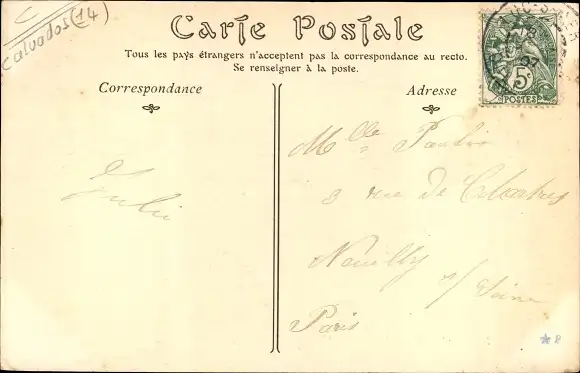 C
Calvados (14)
Carte Postale
Tous les pays étrangers n'acceptent pas la correspondance au recto.
Se renseigner à la poste.
Correspondance
Adresse
5c
POSTES
07
Mlle
3 rue de
Neuilly
s/ Seine
Paris
8